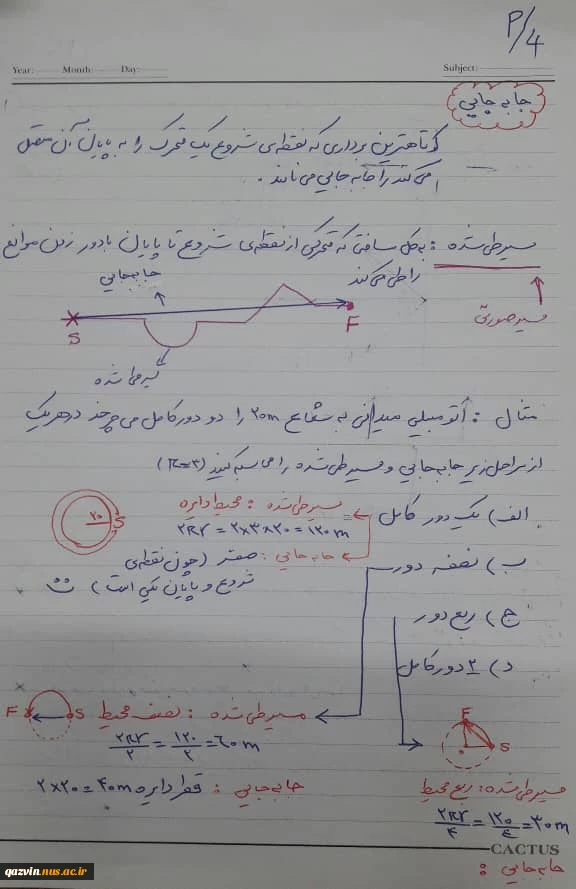 P/4
Year: Month: Day: Subject:
جابه جایی
کوتاهترین برداری که نقطه‌ی شروع یک متحرک را به پایان آن متصل
می‌کند را جابه جایی می‌نامند.
مسیر طی شده : به کل مسافتی که متحرکی از نقطه‌ی شروع تا پایان با دور زدن موانع
را طی می‌کند
جابه‌جایی
مسیر صورتی
S
F
مسیر طی شده
مثال : اتومبیلی میدانی به شعاع ۲۰m را دو دور کامل می‌چرخد در هریک
از مراحل زیر جابه جایی و مسیر طی شده را محاسبه کنید (π=۳)
الف) یک دور کامل
مسیر طی شده : محیط دایره
۲πr = ۲×۳×۲۰ = ۱۲۰ m
جابه جایی : صفر (چون نقطه‌ی
شروع و پایان یکی است)
۲۰
S
ب) نصفه دور
ج) ربع دور
د) ۲ دور کامل
F
S
مسیر طی شده : نصف محیط
۲πr/۲ = ۱۲۰/۲ = ۶۰ m
جابه جایی : قطر دایره ۲×۲۰=۴۰m
F
S
مسیر طی شده : ربع محیط
۲πr/۴ = ۱۲۰/۴ = ۳۰ m
جابه جایی :
CACTUS
qazvin.nus.ac.ir